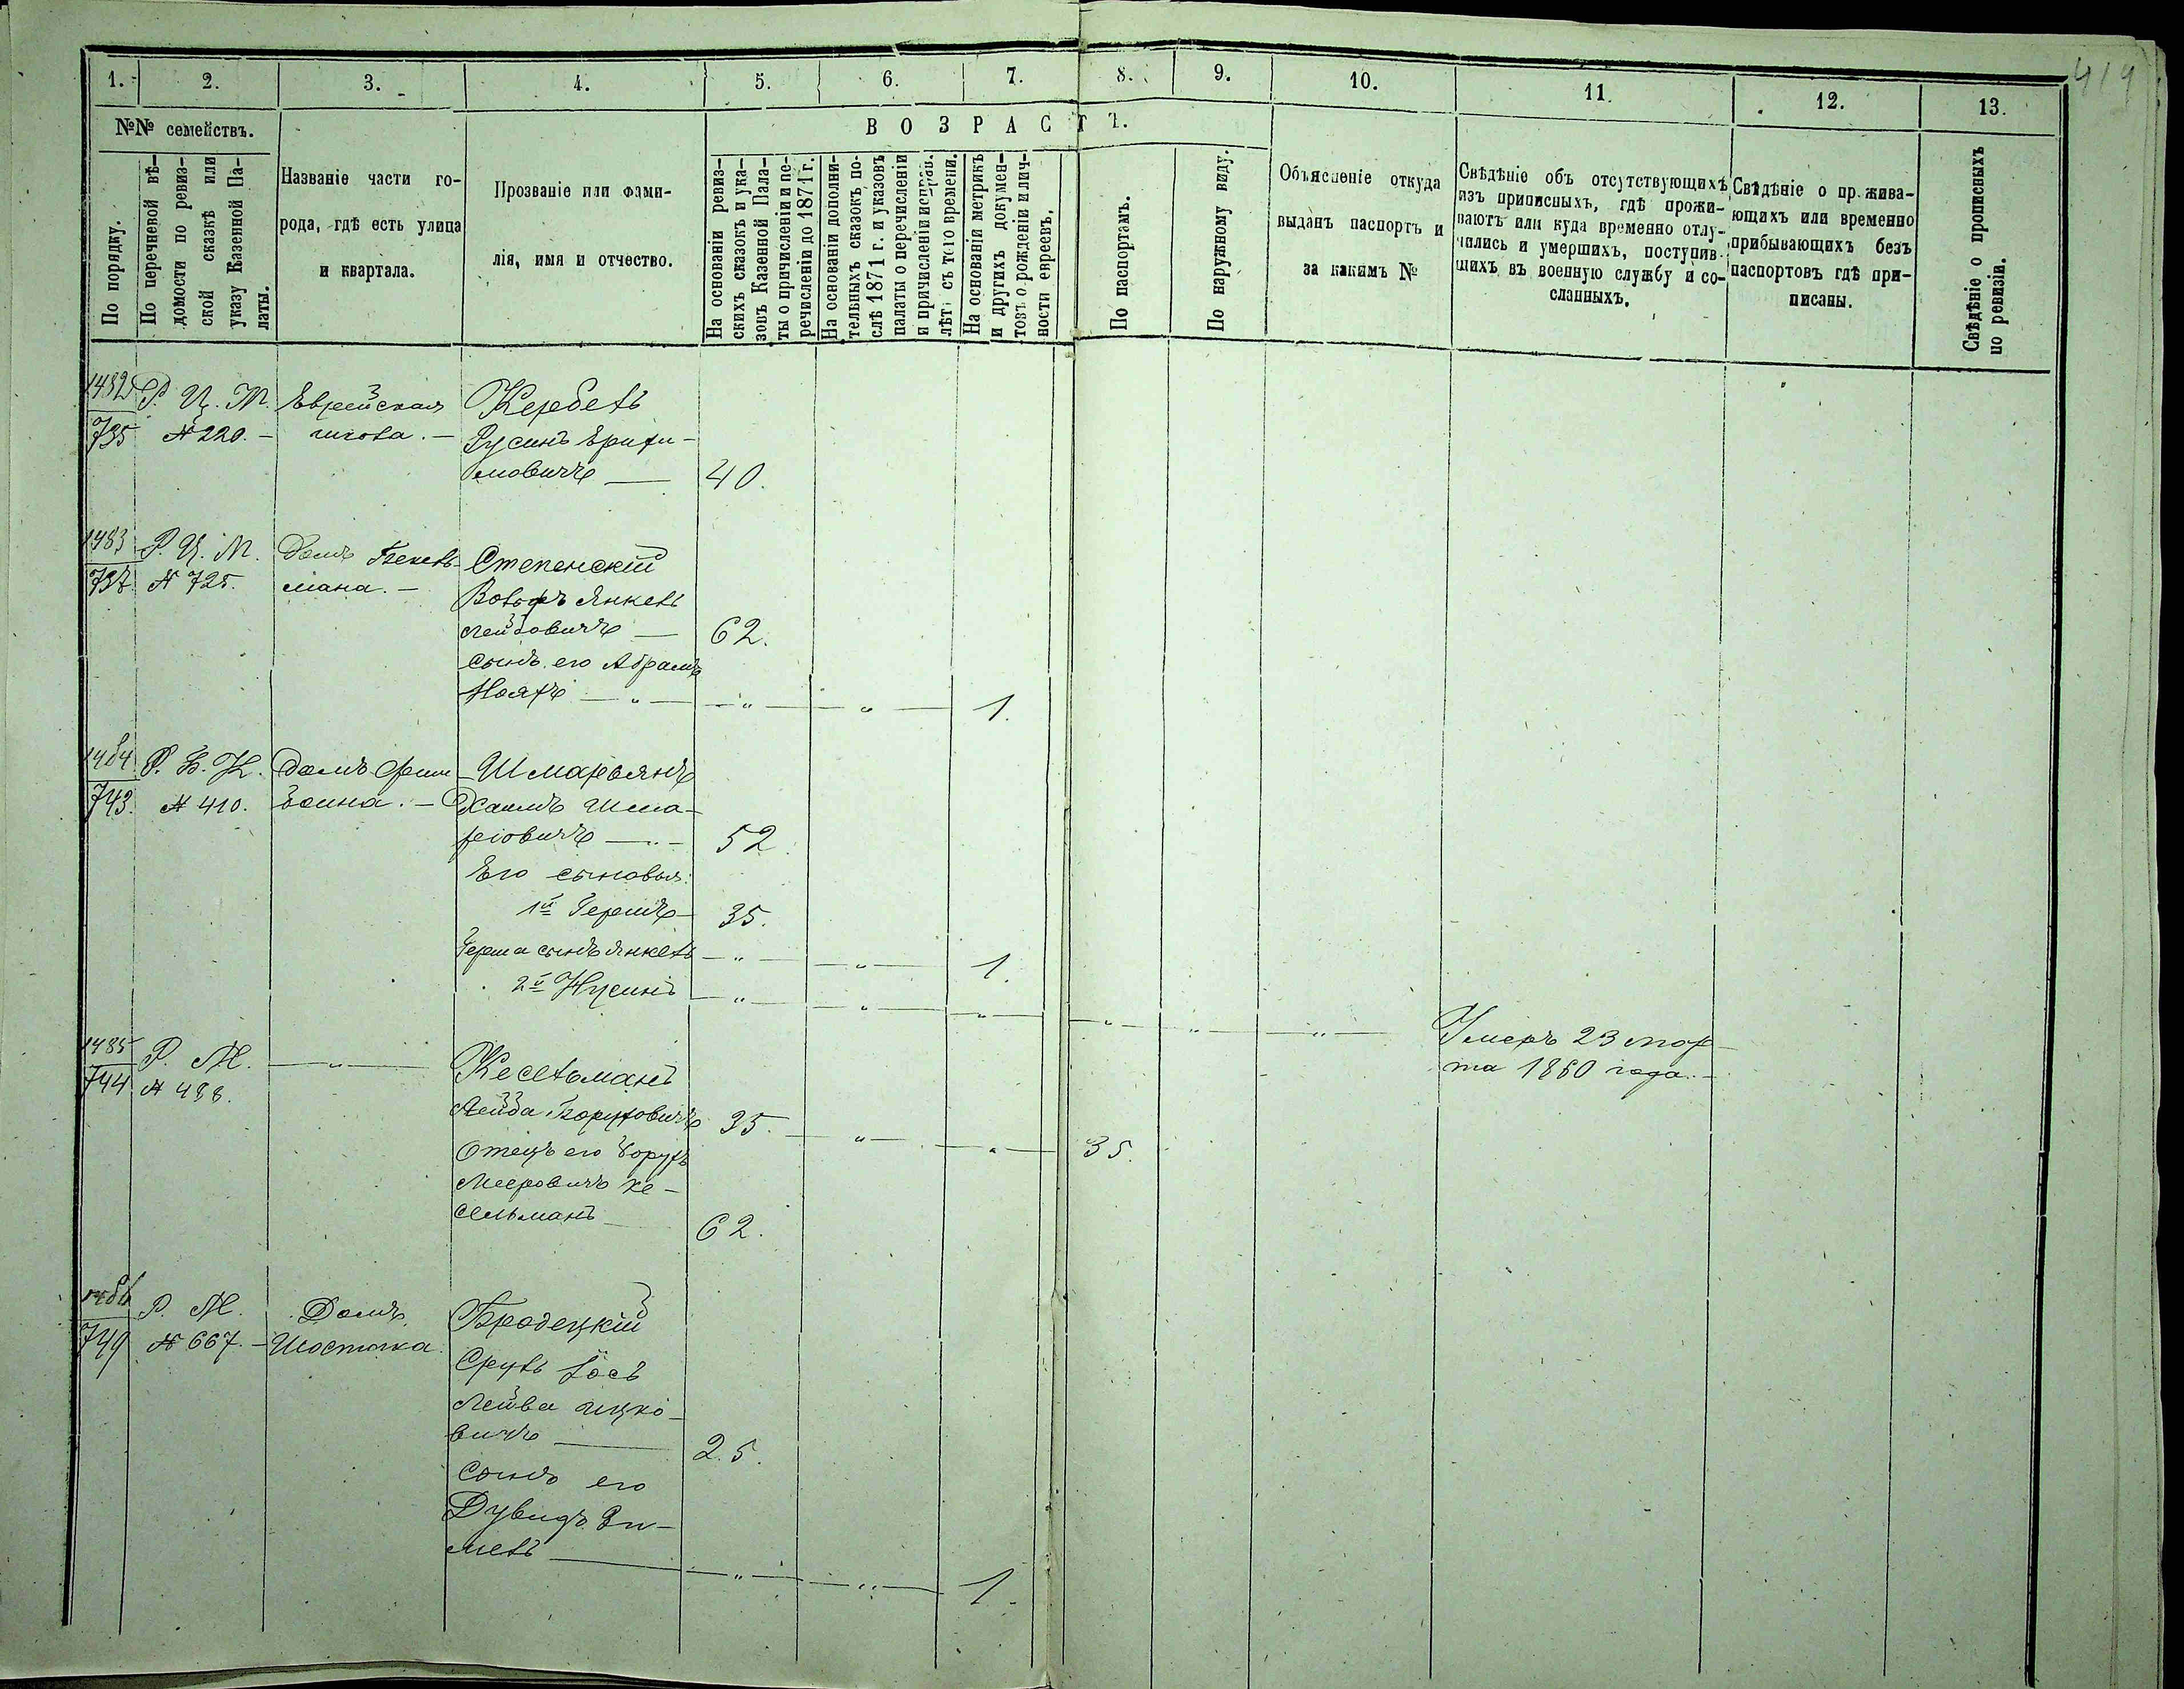 419
1. 2. 3. 4. 5. 6. 7. 8. 9. 10. 11. 12. 13.
№№ семействъ.
По порядку.
По перечневой вѣ-
домости по ревиз-
ской сказкѣ или
указу Казенной Па-
латы.
Названіе части го-
рода, гдѣ есть улица
и квартала.
Прозваніе или фами-
лія, имя и отчество.
ВОЗРАСТЪ.
На основаніи ревиз-
скихъ сказокъ и ука-
зовъ Казенной Пала-
ты о причисленіи и пе-
речисленіи до 1871 г.
На основаніи дополни-
тельныхъ сказокъ по-
слѣ 1871 г. и указовъ
палаты о перечисленіи
и причисленіи исправ.
лѣт съ того времени.
На основаніи метрикъ
и другихъ докумен-
товъ о рожденіи и лич-
ности евреевъ.
По паспортамъ.
По наружному виду.
Объясненіе откуда
выданъ паспортъ и
за какимъ №
Свѣдѣніе объ отсутствующихъ
изъ приписныхъ, гдѣ прожи-
ваютъ или куда временно отлу-
чились и умершихъ, поступив-
шихъ въ военную службу и со-
сланныхъ.
Свѣдѣніе о прожива-
ющихъ или временно
прибывающихъ безъ
паспортовъ гдѣ при-
писаны.
Свѣдѣніе о прописныхъ
по ревизіи.
1482 Р. Ц. М. Еврейская Кербель
735 № 220. — школа. — Русинъ Ерухи-
мовичъ — 40.
1483 Р. Ц. М. Домъ Степенскій
737. № 725. мана. — Вольфъ Янкель
Лейбовичъ — 62.
сынъ его Абрамъ
Нояхъ — " — " — " — 1.
1484 Р. Б. К. Домъ Шмарьянъ
743. № 410. Хаимъ Шма-
ріовичъ — " — 52.
Его сыновья:
1й Гершъ — 35.
Герша сынъ Янкель — " — " — 1.
2й Нусинъ — " — " — " — " — " — " — Умеръ 23 мар-
та 1880 года. —
1485 Р. М. — " — Кесельманъ
744 № 488.
Лейба Боруховичъ 35. — " — " — 35.
Отецъ его Борухъ
Мееровичъ Ке-
сельманъ — 62.
1486 Р. М. Домъ Бродецкій
749 № 667. — Шостака.
Сруль Іось
Лейба Ицко-
вичъ — 25.
Сынъ его
Дувидъ Зи-
мель — " — " — 1.